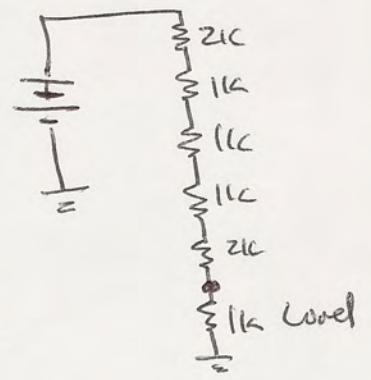 2K
1K
1K
1K
2K
1K Load